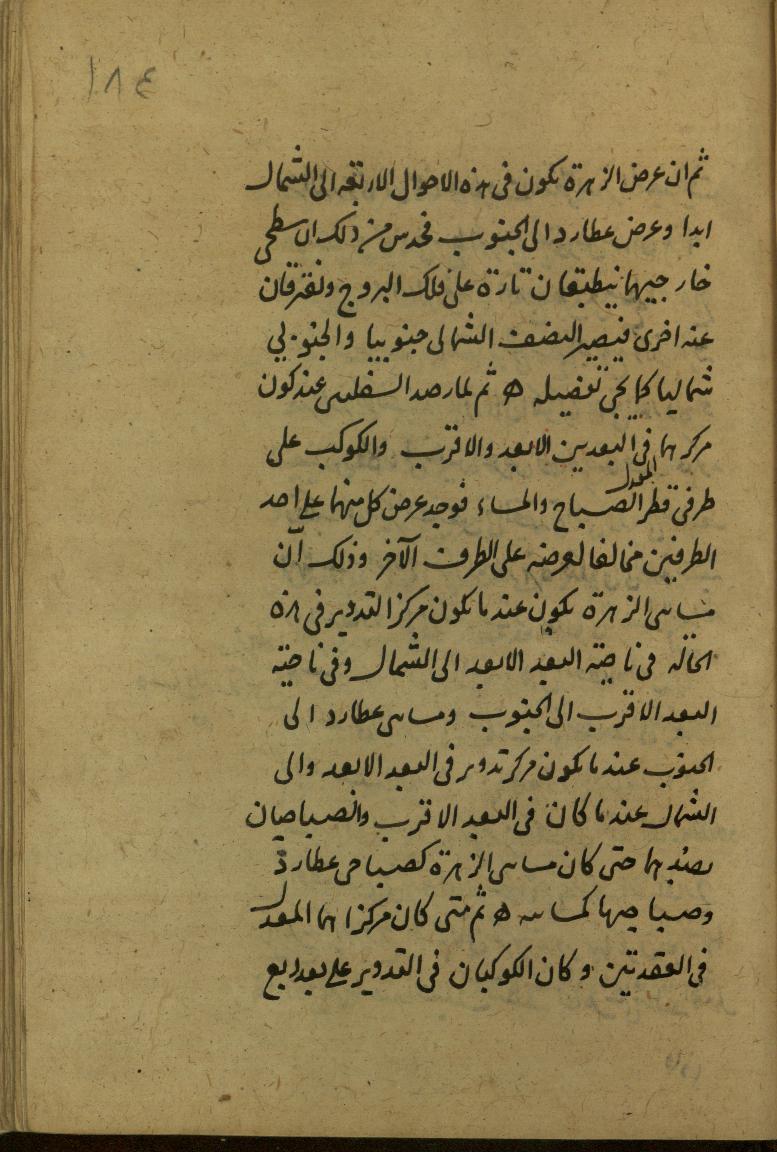 ١٨٤
ثم ان عرض الزهرة يكون فى هذه الاحوال الاربعة الى الشمال
ابدا وعرض عطارد الى الجنوب فحدس من ذلك ان سطحى
خارجيهما ينطبقان تارة على فلك البروج ويفترقان
عنه اخرى فيصير النصف الشمالى جنوبيا والجنوبى
شماليا كما يجئ تفصيله ثم لما رصد السفليين عند كون
مركزهما فى البعدين الابعد والاقرب والكوكب على
طرفى قطر الصباح والمساء فوجد عرض كل منهما على احد
المعدل
الطرفين مخالفا لعرضه على الطرف الآخر وذلك ان
مسائى الزهرة يكون عند ما يكون مركز التدوير فى هذه
الحاله فى ناحية البعد الابعد الى الشمال وفى ناحية
البعد الاقرب الى الجنوب ومسائى عطارد الى
الجنوب عند ما يكون مركز تدوير فى البعد الابعد والى
الشمال عند ما كان فى البعد الاقرب والصباحيان
بضدهما حتى كان مسائى الزهرة كصباحى عطارد
وصباحيها كمسائيه ثم متى كان مركزاهما المعدل
فى العقدتين وكان الكوكبان فى التدوير على بعد ربع